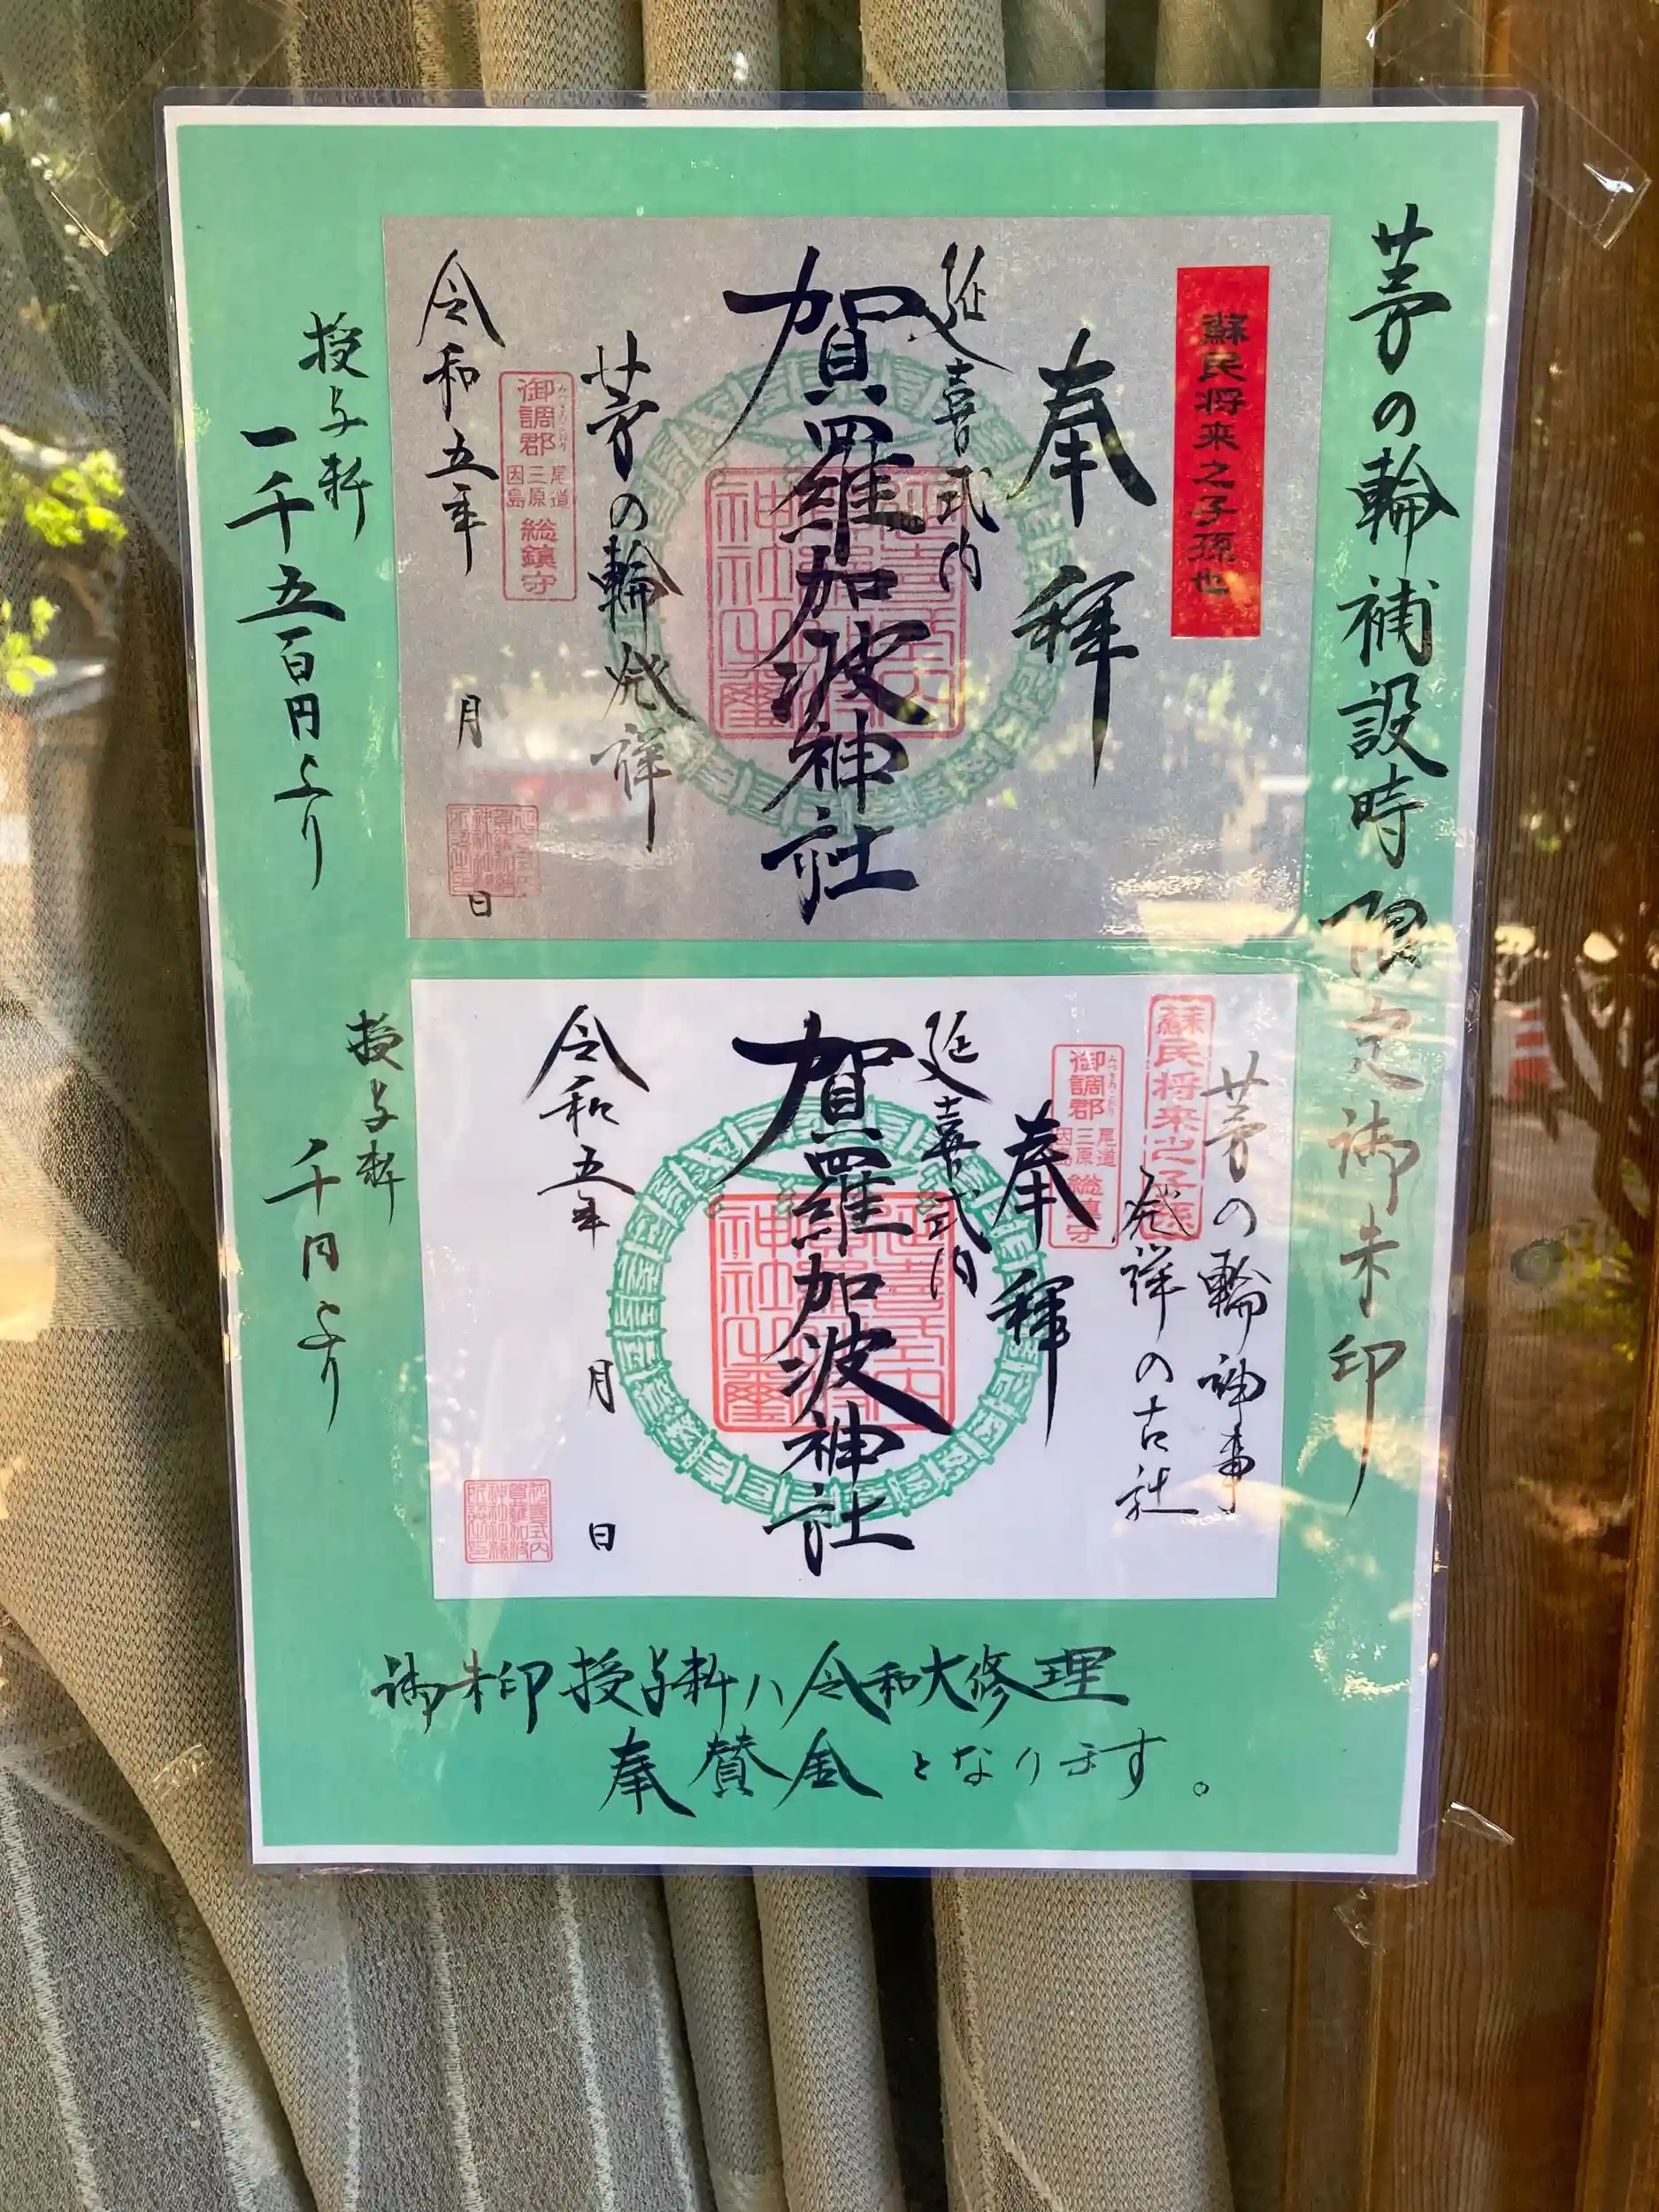 茅の輪補設時限定御朱印
蘇民将来之子孫也
奉拝
延喜式内
賀羅加波神社
茅の輪発祥
御調郡
みつきのこおり
尾道
三原
因島
総鎮守
令和五年 月 日
授与料
一千五百円より
茅の輪神事
発祥の古社
蘇民将来之子孫
御調郡
尾道
三原
因島
総鎮守
奉拝
延喜式内
賀羅加波神社
神社之璽
令和五年 月 日
授与料
千円より
御朱印授与料ハ令和大修理
奉賛金となります。